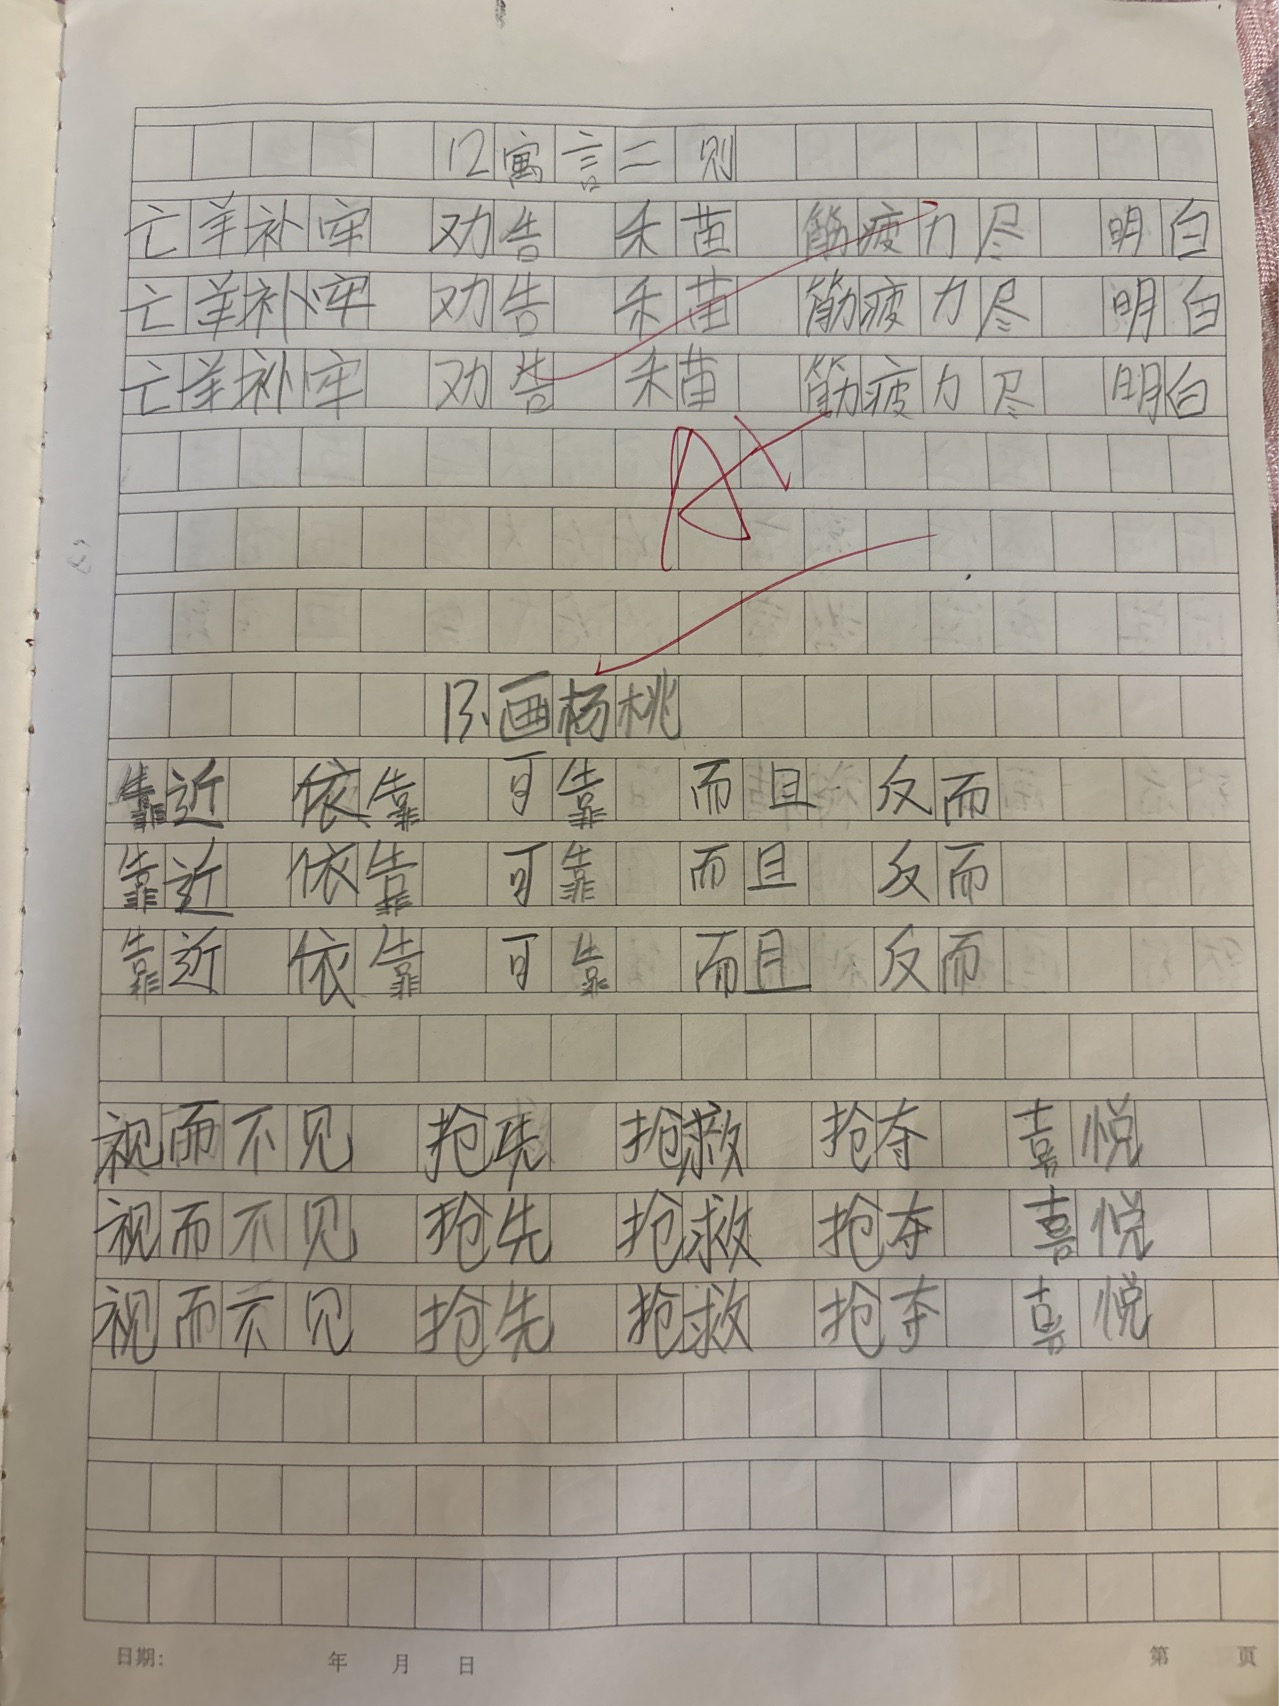 12寓言二则
亡羊补牢 劝告 禾苗 筋疲力尽 明白
亡羊补牢 劝告 禾苗 筋疲力尽 明白
亡羊补牢 劝告 禾苗 筋疲力尽 明白
A+
13.画杨桃
靠近 依靠 可靠 而且 反而
靠近 依靠 可靠 而且 反而
靠近 依靠 可靠 而且 反而
视而不见 抢先 抢救 抢夺 喜悦
视而不见 抢先 抢救 抢夺 喜悦
视而不见 抢先 抢救 抢夺 喜悦
日期: 年 月 日 第 页